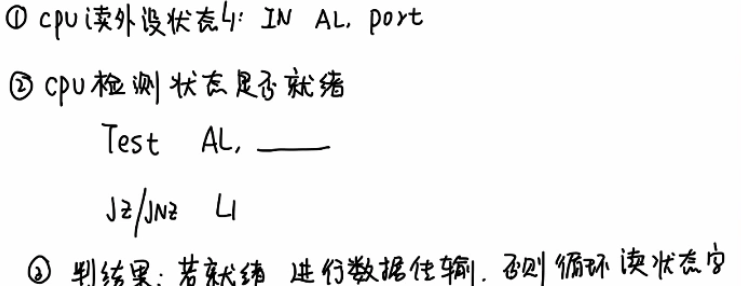 ① CPU读外设状态L1: IN AL, port
② CPU检测状态是否就绪
Test AL, ____
JZ/JNZ L1
③ 判结果: 若就绪 进行数据传输. 否则循环读状态字